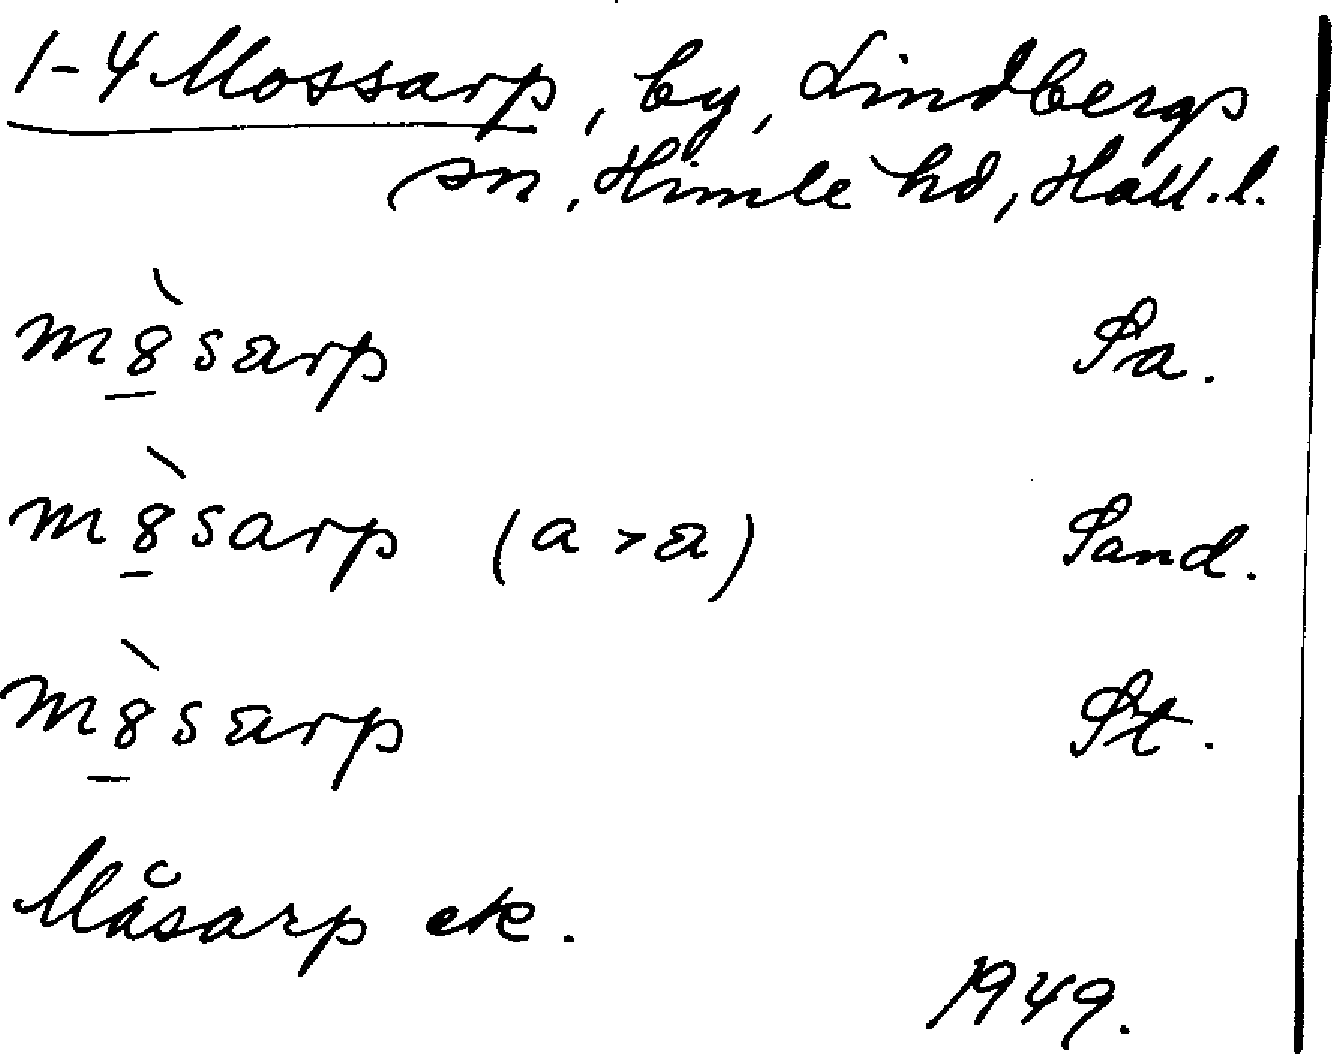 1-4 Mossarp, by, Lindbergs
sn, Himle hd, Hall. l.
m8̲̀sarp Sa.
m8̲̀sarp (a > a) Sand.
m8̲̀sarp St.
Måsarp ek.
1949.